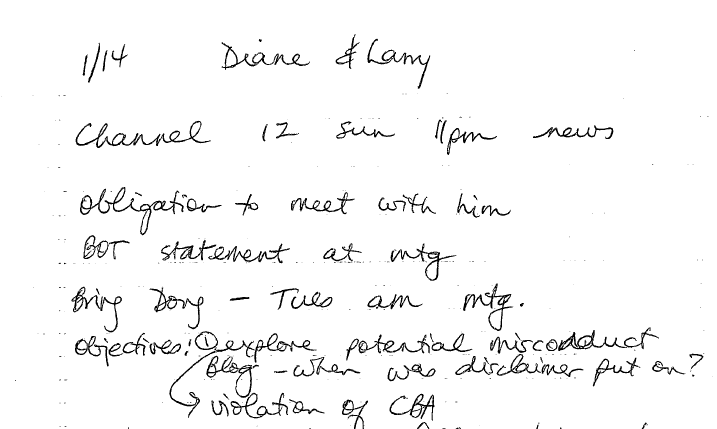 1/14 Diane & Larry
Channel 12 Sun 11pm news
obligation to meet with him
BOT statement at mtg
Bring Doug - Tues am mtg.
objectives: ① explore potential misconduct
Blog - when was disclaimer put on?
violation of CBA